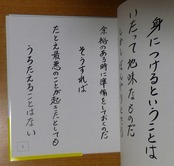 身につけるということは
いたって地味なものだ
余裕のある時に準備をしておくのだ
そうすれば
たとえ最悪のことが起きたとしても
うろたえることはない